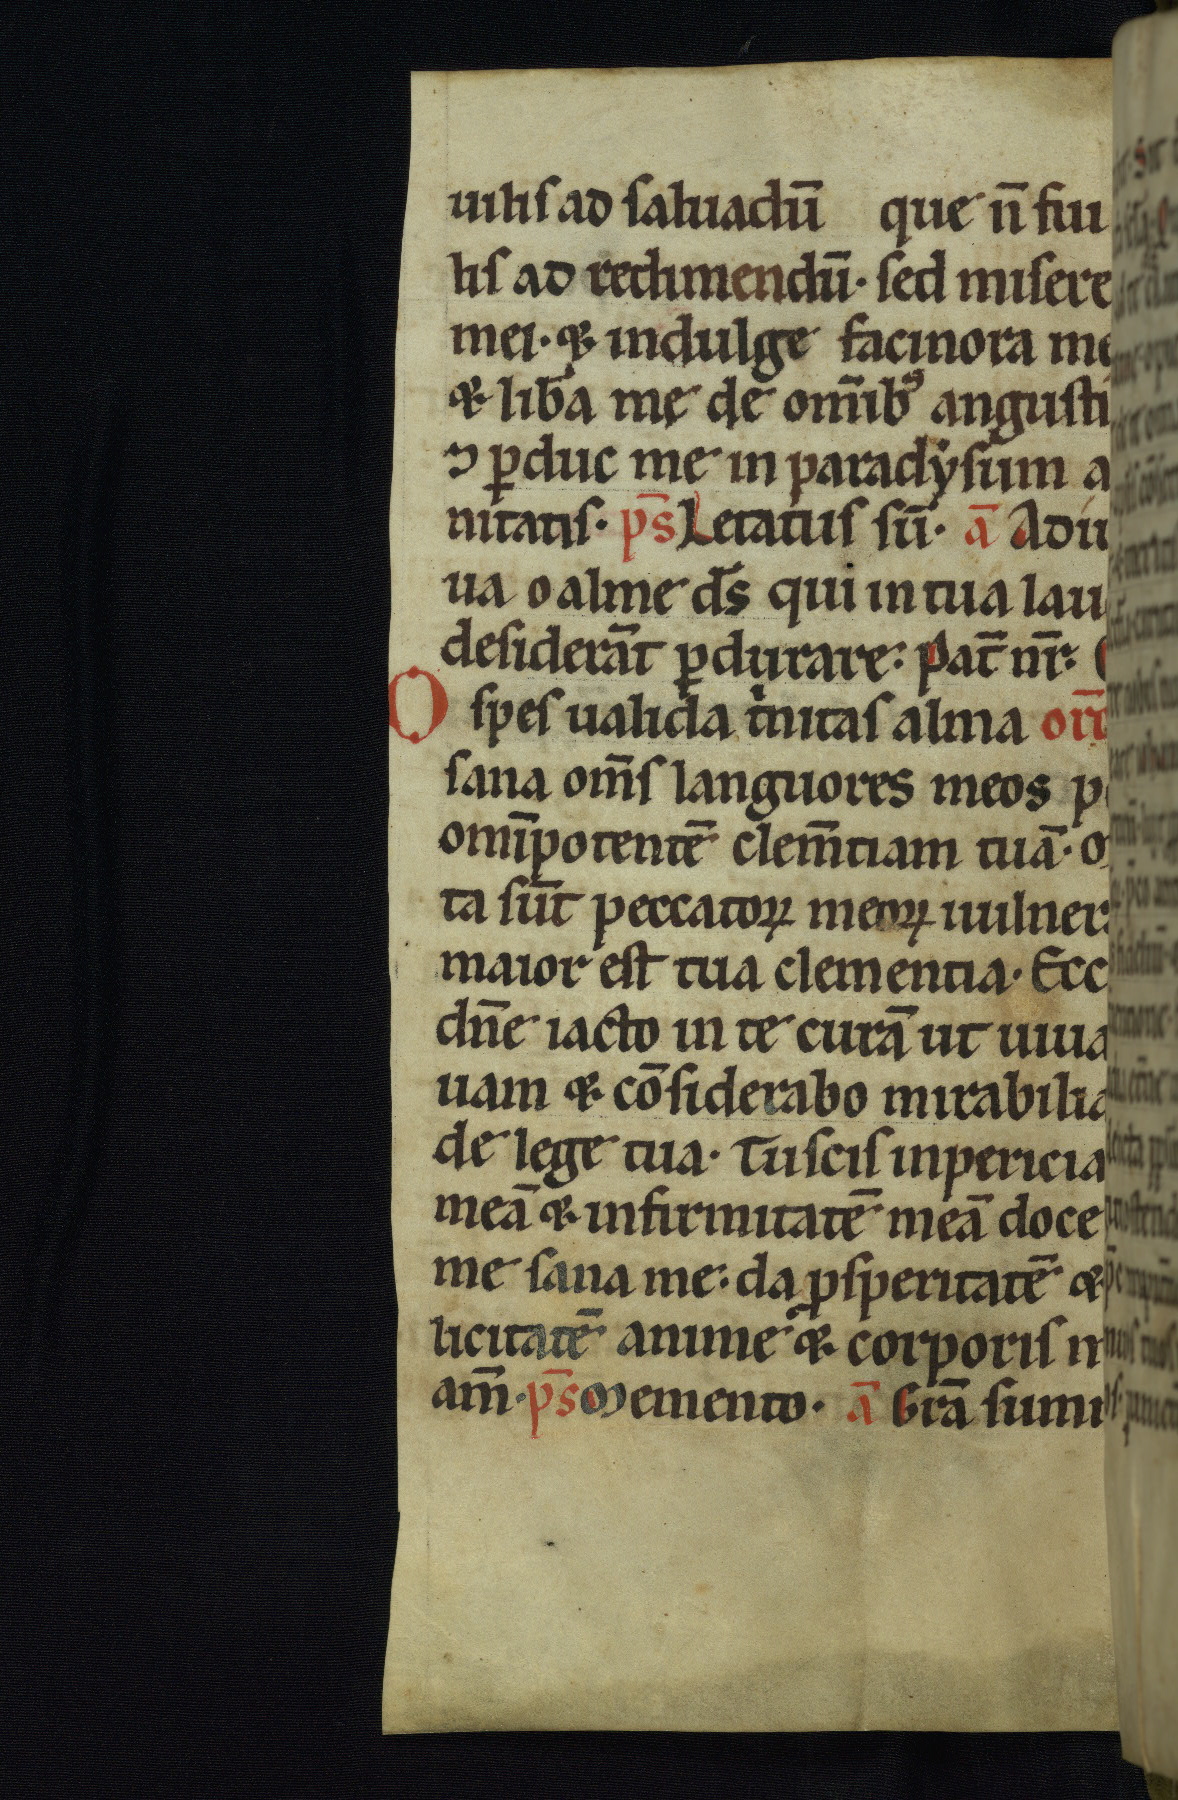 uilis ad saluadū que n̄ fiu
lis ad redimendū· sed misere
mei· & indulge facinora me
& lib̄a me de om̄ibꝰ angusti
⁊ ꝑduc me in paradẏsum a
nitatis· p̄s Letatus sū· ā Adiu
ua o alme d̄s qui in tua lau
desiderāt ꝑdurare: Pat̄ nr̄:
O spes ualida tͥnitas alma or̄
sana om̄s languores meos p
omīpotentē clem̄tiam tuā· 
ta sūt peccatoꝝ meoꝝ uulner
maior est tua clementia· Ecc
dn̄e iacto in te curā ut uiua
uam & cōsiderabo mirabilia
de lege tua· Tu scis inpericia
meā & infirmitatē meā doce
me sana me: da ꝓsperitatē &
licitatē anime & corporis m
am̄· p̄s Memento· ā Grā sum